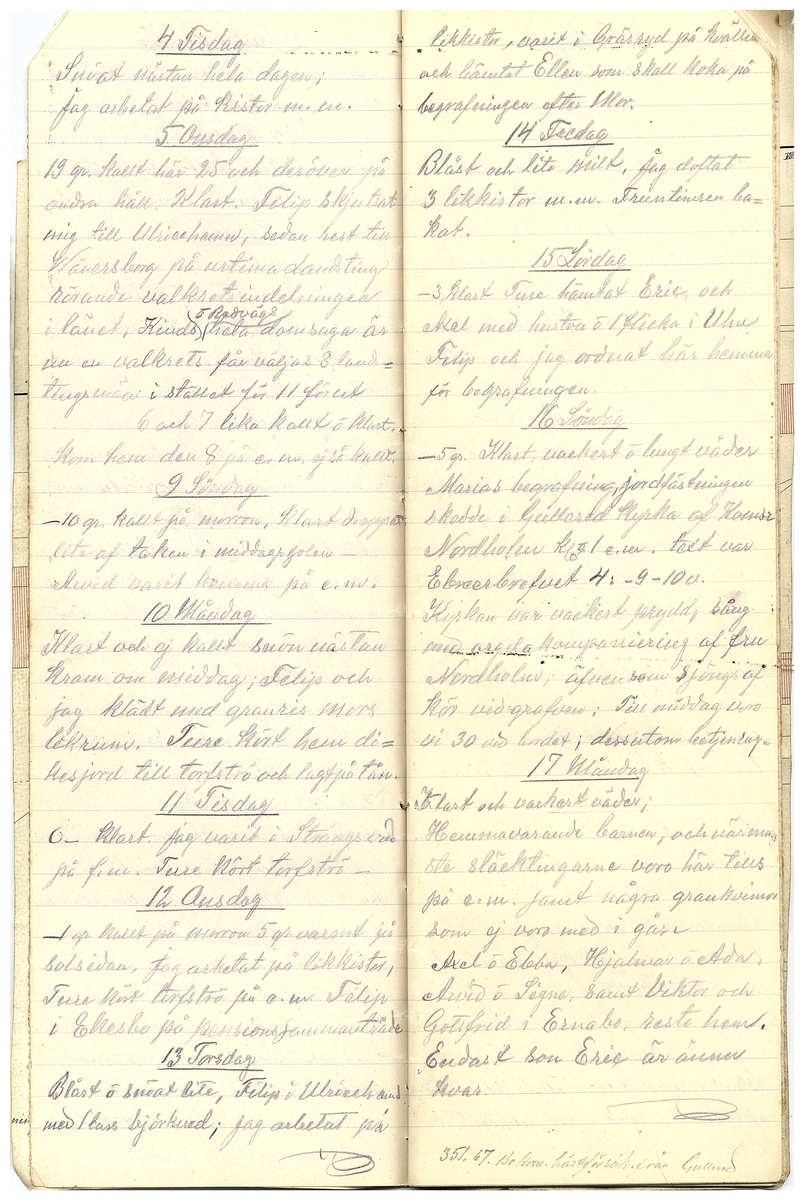 4 Tisdag
Snöat nästan hela dagen;
Jag arbetat på kistor m.m.
5 Onsdag
19 gr. kallt här 25 och deröver på
andra håll. Klart. Filip skjutsat
mig till Ulricehamn, sedan rest till
Wänersborg på urtima Landsting
rörande valkretsindelningen
i länet, Kinds ö Redvägs hela domsaga är
nu en valkrets får väljas 8 lands=
tingsmän i stället för 11 förut
6 och 7 lika kallt ö klart.
kom hem den 8 på e.m. ej så kallt.
9 Söndag
-10 gr. kallt på morron, Klart droppat
lite af taken i middagssolen –
Arvid varit hemma på e.m.
10 Måndag
Klart och ej kallt snön nästan
kram om middag; Filip och
jag klädt med granris mors
likrum. Ture kört hem di=
kesjord till torfströ och lagt på tån.
11 Tisdag
0– klart. Jag varit i Strängsered
på f.m. Ture kört torfströ –
12 Onsdag
-1 gr kallt på morron 5 gr varmt på
solsidan. Jag arbetat på likkistor,
Ture kört torfströ på a.m. Filip
i Ekesbo på pensionssammanträde
13 Torsdag
Blåst ö snöat lite, Filip i Ulriceh amn
med 1 lass björkved; Jag arbetat på
likkistor, varit i Gräsryd på kvällen
och hämtat Ellen som skall koka på
begrafningen efter Mor.
14 Fredag
Blåst och lite milt, Jag doftat
3 likkistor m.m. Fruntimren ba=
kat.
15 Lördag
-3, klart Ture hämtat Eric, och
Axel med hustru ö 1 flicka i Uhn
Filip och jag ordnat här hemma
för begrafningen.
16 Söndag
-5 gr. Klart, vackert ö lungt väder
Marias begrafning, jordfästningen
skedde i Gullered Kyrka af Komr
Nordholm kl 1 e.m. text var
Ebreerbrefvet 4: -9-10 v.
Kyrkan var vackert prydd, sång
med orgelakompaniering af fru
Nordholm; äfven som sjöngs af
kör vid grafven; Till middag voro
vi 30 vid bordet; dessutom betjening.
17 Måndag
Klart och vackert väder;
Hemmavarande barnen, och närma
ste släcktingarne voro här tills
på e.m. samt några grankvinnor
som ej voro med i går.
Axel ö Ebba, Hjalmar ö Ada,
Arvid ö Signe, samt Viktor och
Gottfrid i Ernabo, reste hem.
Endast son Eric är ännu
kvar.
351.67.